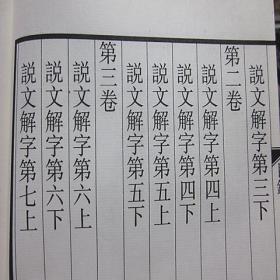 說文解字第三下
第二卷
說文解字第四上
說文解字第四下
說文解字第五上
說文解字第五下
第三卷
說文解字第六上
說文解字第六下
說文解字第七上